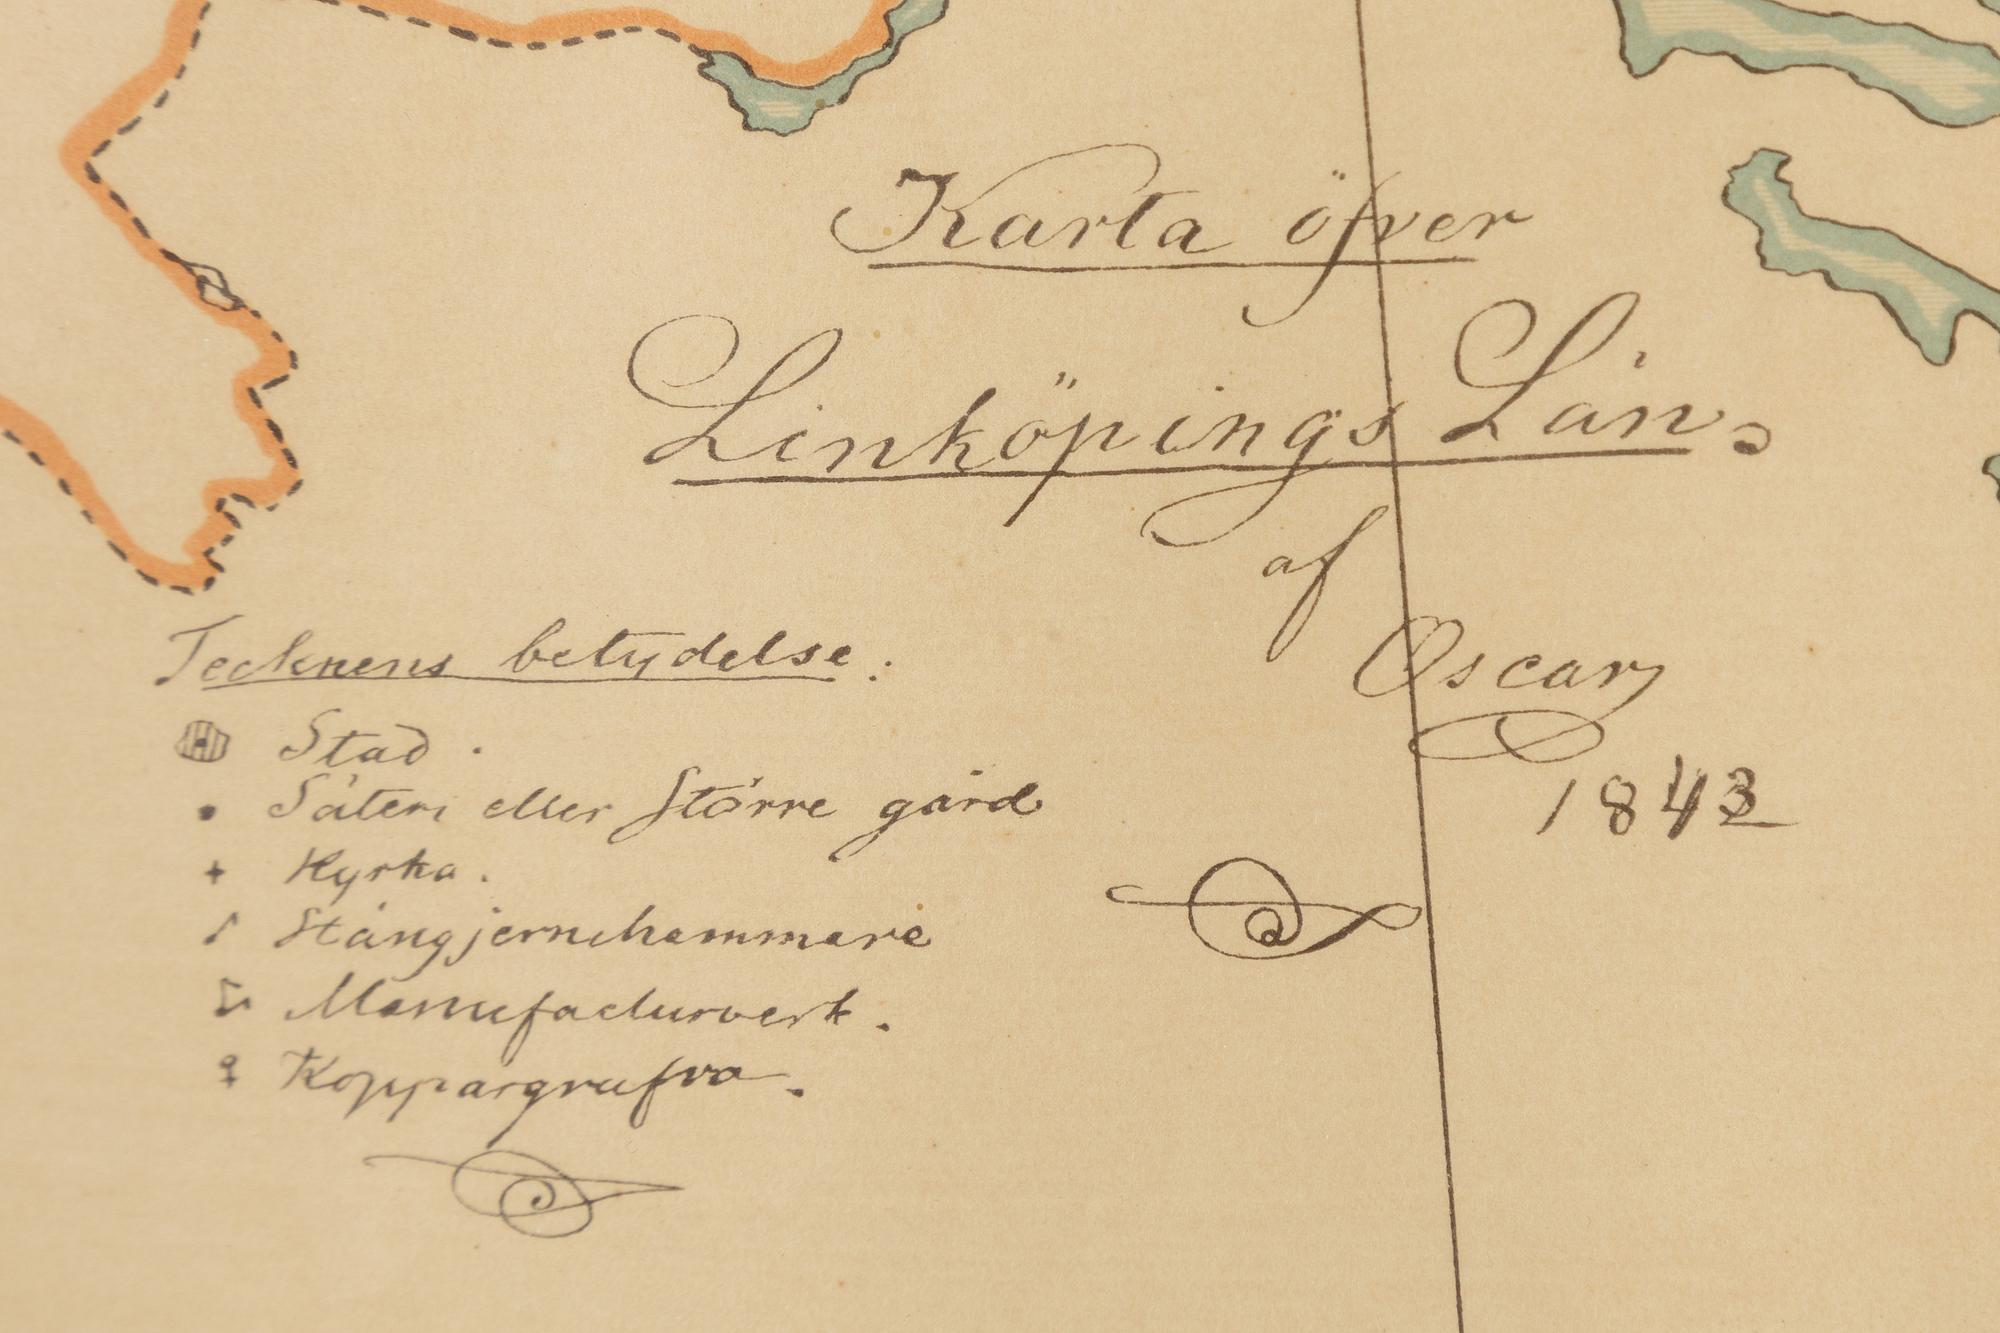 Karta öfver
Linköpings Län.
af
Oscar
1843
Tecknens betydelse.
Stad.
Säteri eller Större gård
Kyrka.
Stångjernshammare
Manufacturverk.
Koppargrufva.